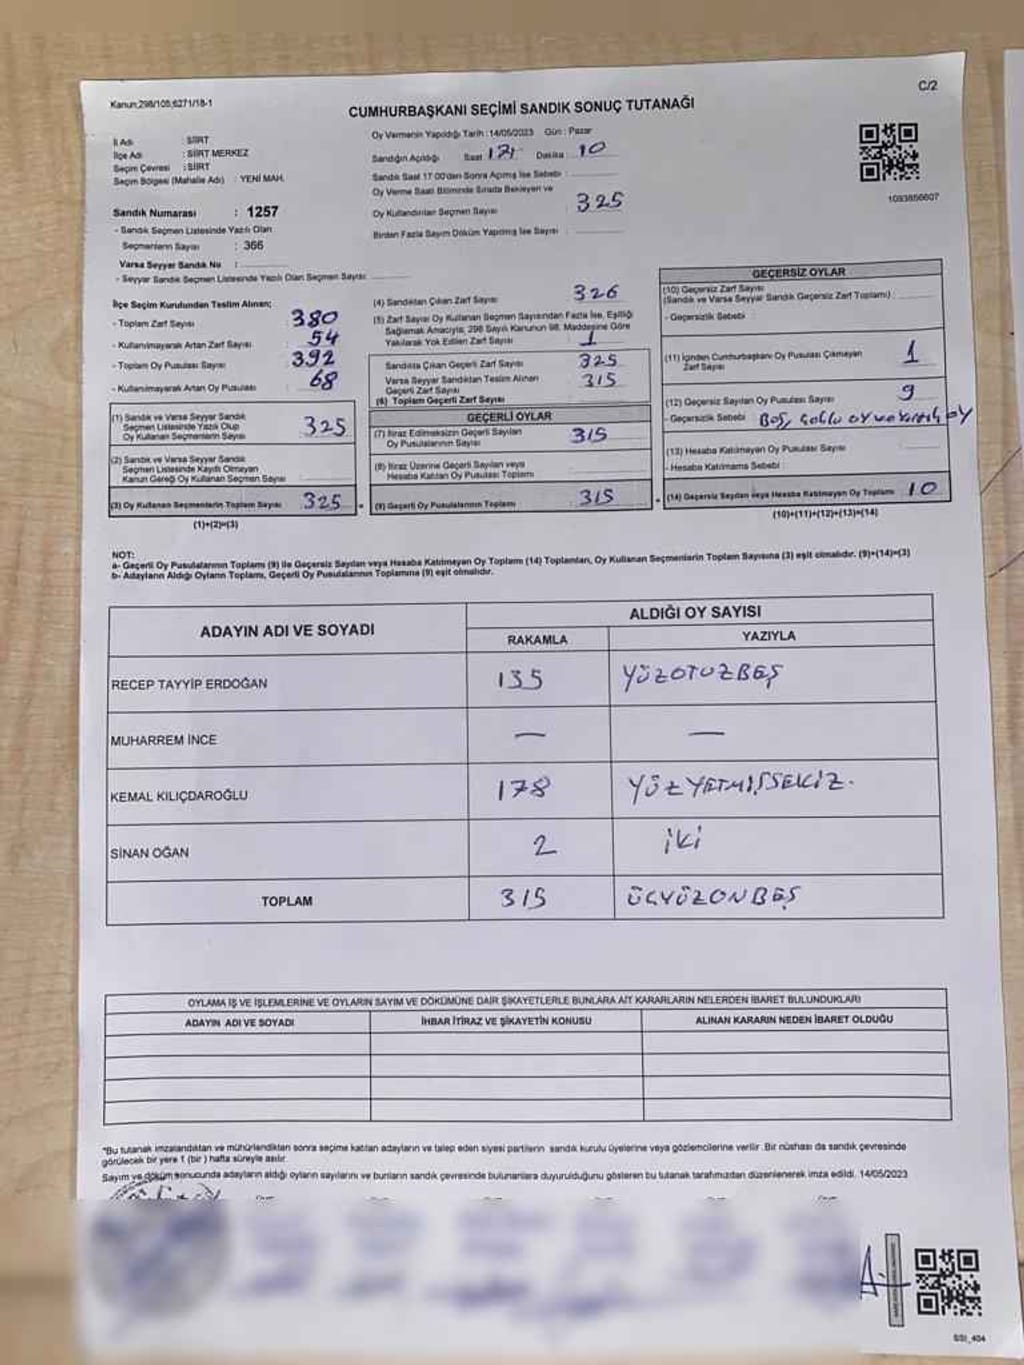 Kanun;298/105;6271/18-1
C/2
CUMHURBAŞKANI SEÇİMİ SANDIK SONUÇ TUTANAĞI
İl Adı : SİİRT
İlçe Adı : SİİRT MERKEZ
Seçim Çevresi : SİİRT
Seçim Bölgesi (Mahalle Adı) : YENİ MAH.
Oy Vermenin Yapıldığı Tarih :14/05/2023 Gün : Pazar
Sandığın Açıldığı Saat Dakika : 10
Sandık Saat 17:00'den Sonra Açılmış İse Sebebi :
Oy Verme Saati Bitiminde Sırada Bekleyen ve
Oy Kullandırılan Seçmen Sayısı : 325
Birden Fazla Sayım Döküm Yapılmış İse Sayısı :
1093856607
Sandık Numarası : 1257
- Sandık Seçmen Listesinde Yazılı Olan
Seçmenlerin Sayısı : 366
Varsa Seyyar Sandık No :
- Seyyar Sandık Seçmen Listesinde Yazılı Olan Seçmen Sayısı:
İlçe Seçim Kurulundan Teslim Alınan;
- Toplam Zarf Sayısı : 380
- Kullanılmayarak Artan Zarf Sayısı : 54
- Toplam Oy Pusulası Sayısı : 392
- Kullanılmayarak Artan Oy Pusulası : 68
(1) Sandık ve Varsa Seyyar Sandık
Seçmen Listesinde Yazılı Olup
Oy Kullanan Seçmenlerin Sayısı : 325
(2) Sandık ve Varsa Seyyar Sandık
Seçmen Listesinde Kayıtlı Olmayan
Kanun Gereği Oy Kullanan Seçmen Sayısı :
(3) Oy Kullanan Seçmenlerin Toplam Sayısı : 325
(1)+(2)=(3)
(4) Sandıktan Çıkan Zarf Sayısı : 326
(5) Zarf Sayısı Oy Kullanan Seçmen Sayısından Fazla İse, Eşitliği
Sağlamak Amacıyla; 298 Sayılı Kanunun 98. Maddesine Göre
Yakılarak Yok Edilen Zarf Sayısı : 1
Sandıkta Çıkan Geçerli Zarf Sayısı : 325
Varsa Seyyar Sandıktan Teslim Alınan
Geçerli Zarf Sayısı : 315
(6) Toplam Geçerli Zarf Sayısı :
GEÇERLİ OYLAR
(7) İtiraz Edilmeksizin Geçerli Sayılan
Oy Pusulalarının Sayısı : 315
(8) İtiraz Üzerine Geçerli Sayılan veya
Hesaba Katılan Oy Pusulası Toplamı :
(9) Geçerli Oy Pusulalarının Toplamı : 315
GEÇERSİZ OYLAR
(10) Geçersiz Zarf Sayısı
(Sandık ve Varsa Seyyar Sandık Geçersiz Zarf Toplamı) :
- Geçersizlik Sebebi :
(11) İçinden Cumhurbaşkanı Oy Pusulası Çıkmayan
Zarf Sayısı : 1
(12) Geçersiz Sayılan Oy Pusulası Sayısı : 9
- Geçersizlik Sebebi : Boş, oy
(13) Hesaba Katılmayan Oy Pusulası Sayısı :
- Hesaba Katılmama Sebebi :
(14) Geçersiz Sayılan veya Hesaba Katılmayan Oy Toplamı : 10
(10)+(11)+(12)+(13)=(14)
NOT:
a- Geçerli Oy Pusulalarının Toplamı (9) ile Geçersiz Sayılan veya Hesaba Katılmayan Oy Toplamı (14) Toplamları, Oy Kullanan Seçmenlerin Toplam Sayısına (3) eşit olmalıdır. (9)+(14)=(3)
b- Adayların Aldığı Oyların Toplamı, Geçerli Oy Pusulalarının Toplamına (9) eşit olmalıdır.
ADAYIN ADI VE SOYADI
ALDIĞI OY SAYISI
RAKAMLA YAZIYLA
RECEP TAYYİP ERDOĞAN 135 YÜZOTUZBEŞ
MUHARREM İNCE — —
KEMAL KILIÇDAROĞLU 178 YÜZYETMİŞSEKİZ.
SİNAN OĞAN 2 İKİ
TOPLAM 315 ÜÇYÜZONBEŞ
OYLAMA İŞ VE İŞLEMLERİNE VE OYLARIN SAYIM VE DÖKÜMÜNE DAİR ŞİKAYETLERLE BUNLARA AİT KARARLARIN NELERDEN İBARET BULUNDUKLARI
ADAYIN ADI VE SOYADI İHBAR İTİRAZ VE ŞİKAYETİN KONUSU ALINAN KARARIN NEDEN İBARET OLDUĞU
*Bu tutanak imzalandıktan ve mühürlendikten sonra seçime katılan adayların ve talep eden siyasi partilerin sandık kurulu üyelerine veya gözlemcilerine verilir. Bir nüshası da sandık çevresinde
görülecek bir yere 1 (bir ) hafta süreyle asılır.
Sayım ve döküm sonucunda adayların aldığı oyların sayılarını ve bunların sandık çevresinde bulunanlara duyurulduğunu gösteren bu tutanak tarafımızdan düzenlenerek imza edildi. 14/05/2023
SSI_404